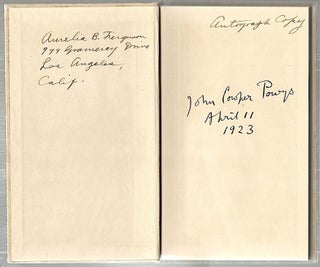 Aurelia B. Ferguson
944 Gramercy Drive
Los Angeles,
Calif.
Autograph Copy
John Cowper Powys
April 11
1923